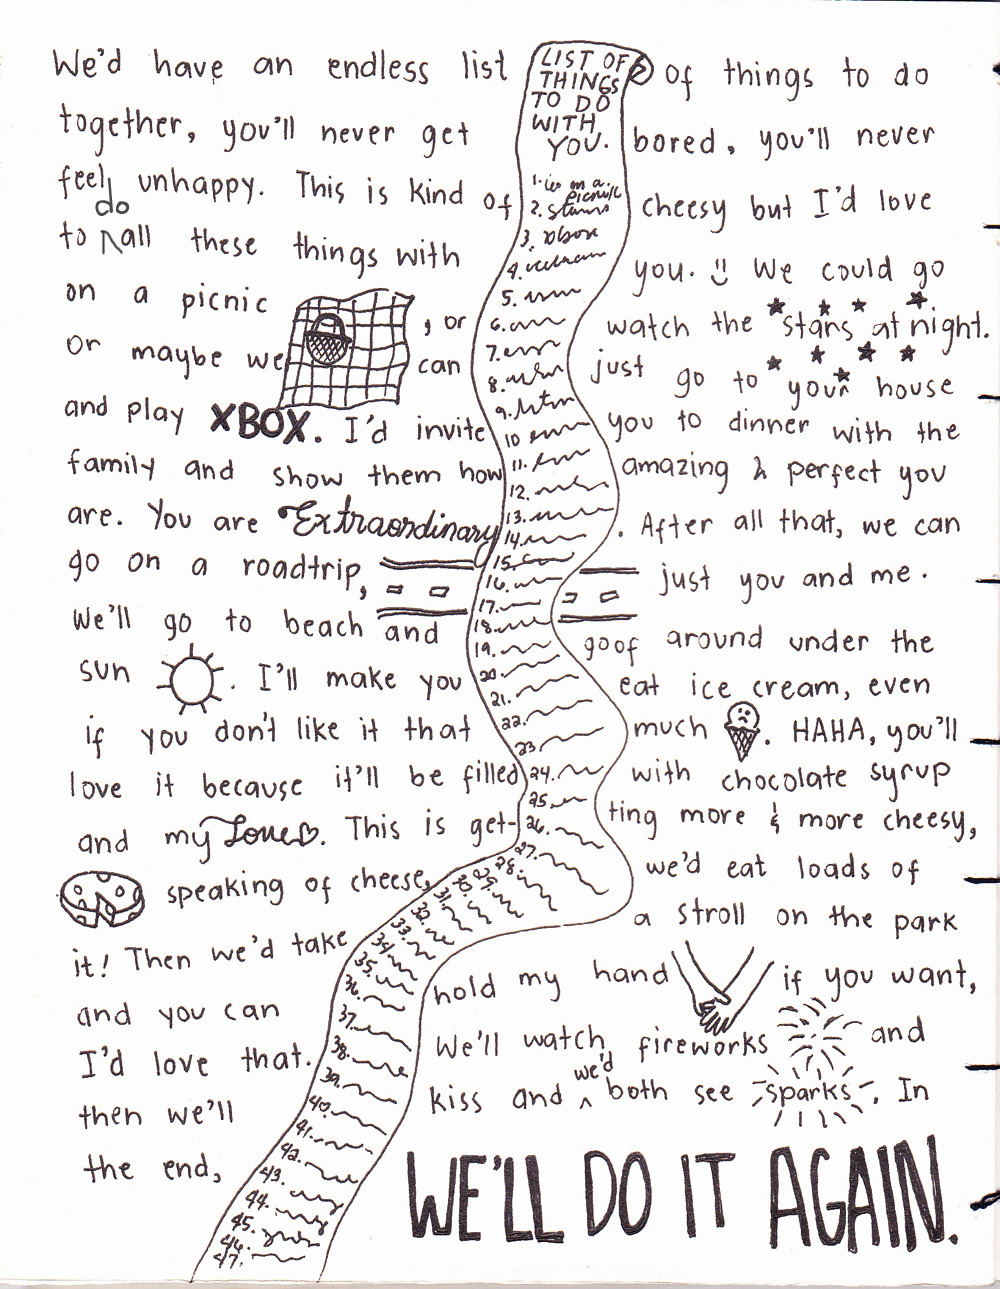 We'd have an endless list of things to do
together, you'll never get bored, you'll never
feel unhappy. This is kind of cheesy but I'd love
to do all these things with you. We could go
on a picnic, or watch the stars at night.
Or maybe we can just go to your house
and play XBOX. I'd invite you to dinner with the
family and show them how amazing & perfect you
are. You are Extraordinary. After all that, we can
go on a roadtrip, just you and me.
We'll go to beach and goof around under the
sun. I'll make you eat ice cream, even
if you don't like it that much. HAHA, you'll
love it because it'll be filled with chocolate syrup
and my Love. This is get-ting more & more cheesy,
speaking of cheese, we'd eat loads of
it! Then we'd take a stroll on the park
and you can hold my hand if you want,
I'd love that. We'll watch fireworks and
then we'll kiss and we'd both see sparks. In
the end, WE'LL DO IT AGAIN.
LIST OF
THINGS
TO DO
WITH
YOU.
1. on a
picnic
2. stars
3. xbox
4.
5.
6.
7.
8.
9.
10.
11.
12.
13.
14.
15.
16.
17.
18.
19.
20.
21.
22.
23.
24.
25.
26.
27.
28.
29.
30.
31.
32.
33.
34.
35.
36.
37.
38.
39.
40.
41.
42.
43.
44.
45.
46.
47.